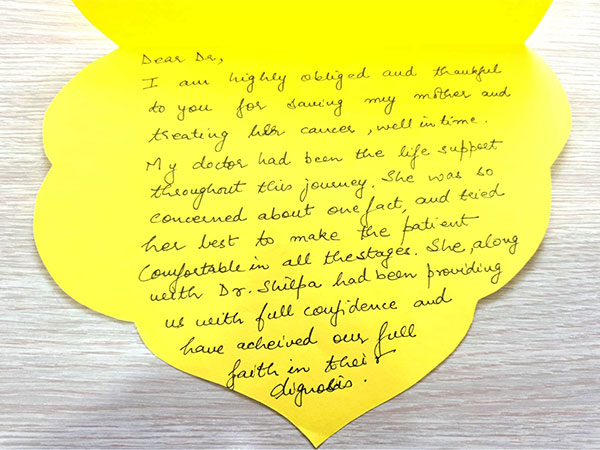 Dear Dr,
I am highly obliged and thankful
to you for saving my mother and
treating her cancer, well in time.
My doctor had been the life support
throughout this journey. She was so
concerned about one fact, and tried
her best to make the patient
comfortable in all the stages. She, along
with Dr. Shilpa had been providing
us with full confidence and
have acheived our full
faith in their
dignosis.